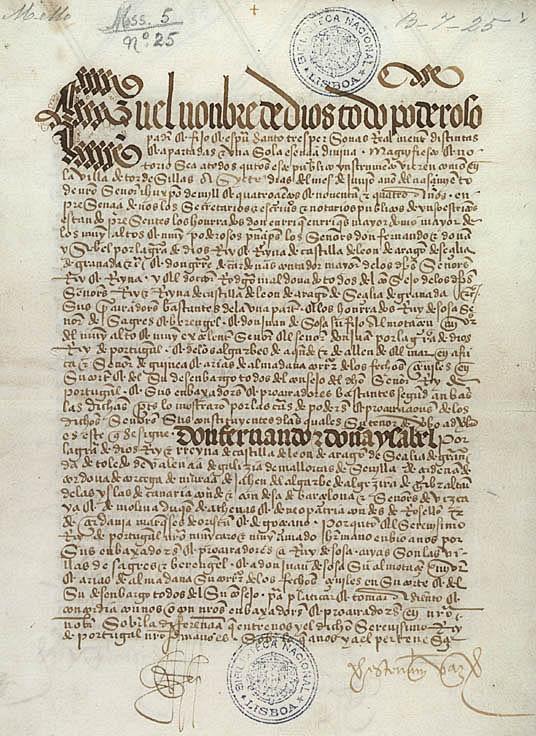 Mello
Mss. 5
nº: 25
B-7-25
BIBLIOTECA NACIONAL
LISBOA
En el nonbre de dios todo poderoso
padre & fijo & espu santo tres personas Realmente distintas
& apartadas & vna Sola esencia diuina. Magnifiesto & no
torio Sea a todos quantos este publico ynstrumento vieren como en
la villa de tordesillas A Siete dias del mes de junio año del nasçimiento
de nro Señor ihu xpo de mill & quatroçientos & nouenta & quatro Años. en
presençia de nos los Secretarios & escriuanos & notarios publicos de yuso escriptos
estando presentes los honrrados don enrique enrriques mayordomo mayor de
los muy altos & muy poderosos prinçipes los Señores don fernando & doña
ysabel por la graçia de dios Rey & Reyna de castilla de leon de aragon de Seçilia
de granada &c & don gutierre de cardenas contador mayor de los dichos Señores
Rey & Reyna. y el dotor Rodrigo maldonado todos del consejo de los dichos
Señores Rey & Reyna de castilla de leon de aragon de Seçilia de granada &c
Sus procuradores bastantes de la vna parte. & los honrrados Ruy de Sosa Se
ñor de Sagres & berengel. & don juan de Sosa Su fijo Almotaçen mayor
del muy alto & muy exçelente Señor el Señor don juan por la graçia de dios
Rey de portugal & de los algarbes de aquende & de allende el mar en afri
ca & Señor de guinea & arias de almadana corregidor de los fechos çeuiles en
Su corte & del Su desenbargo todos del consejo del dicho Señor Rey de
portugal & Sus enbaxadores & procuradores bastantes Segund anbas
las dichas partes lo mostraron por las cartas de poderes & procuraçiones de los
dichos Señores Sus constituyentes de las quales Su tenor de verbo ad verbo
es este que se Sigue Don fernando & doña ysabel por
la graçia de dios Rey & Reyna de castilla de leon de aragon de Seçilia de grana
da de toledo de valençia de galizia de mallorcas de Seuilla de çerdeña de
cordoua de corçega de murçia de jahen del algarbe de algezira de gibraltar
de las yslas de canaria conde & condesa de barçelona & Señores de vizcaya
& de molina duques de athenas & de neopatria condes de Rosellon
& de çerdania marqueses de oristan & de goçiano. Por quanto el Serenisimo
Rey de portugal nro muy caro & muy amado hermano enbio a nos por
Sus enbaxadores & procuradores a Ruy de Sosa cuyas Son las vi
llas de Sagres & berengel. & a don juan de Sosa Su almotaçen mayor
& arias de almadana Su corregidor de los fechos çeuiles en Su corte & del
Su desenbargo todos del Su consejo. para platicar & tomar Asiento &
concordia con nos o con nros enbaxadores & procuradores en nro
nonbre Sobre la diferençia que entre nos y el dicho Serenisimo Rey
de portugal nro hermano es Sobre lo que a nos y a el pertenesçe
BIBLIOTECA NACIONAL
LISBOA